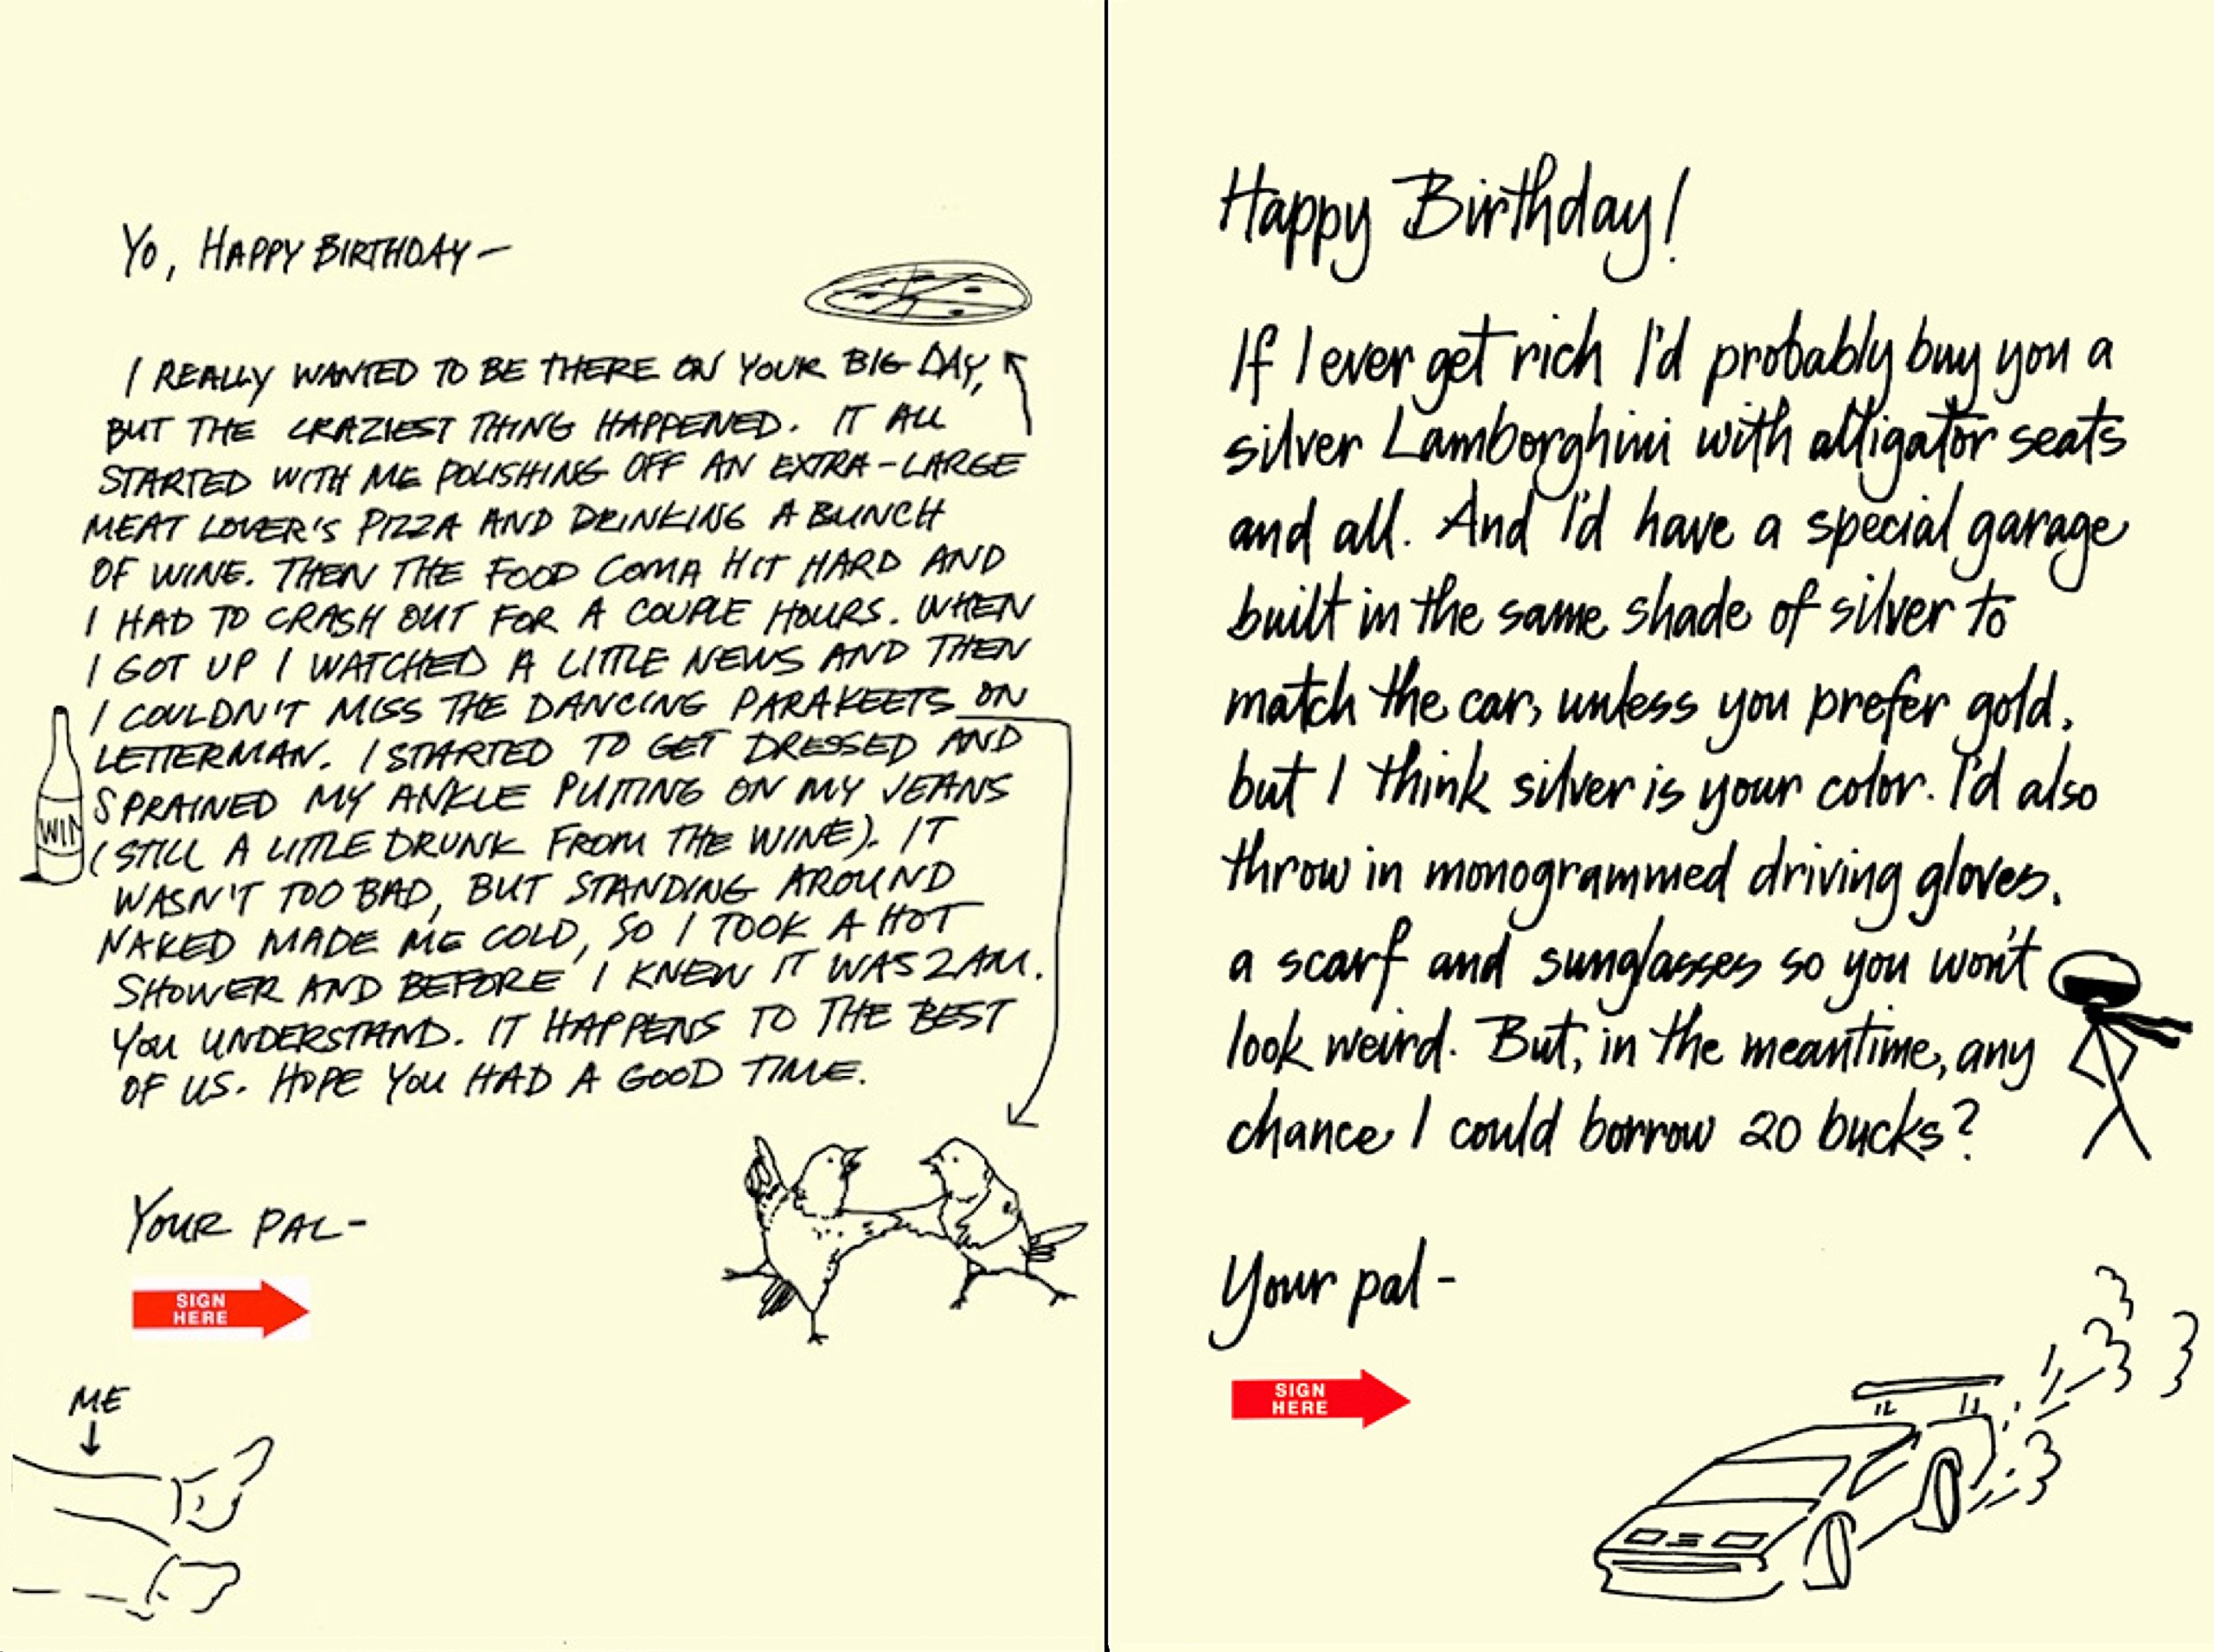 YO, HAPPY BIRTHDAY-
I REALLY WANTED TO BE THERE ON YOUR BIG DAY,
BUT THE CRAZIEST THING HAPPENED. IT ALL
STARTED WITH ME POLISHING OFF AN EXTRA-LARGE
MEAT LOVER'S PIZZA AND DRINKING A BUNCH
OF WINE. THEN THE FOOD COMA HIT HARD AND
I HAD TO CRASH OUT FOR A COUPLE HOURS. WHEN
I GOT UP I WATCHED A LITTLE NEWS AND THEN
I COULDN'T MISS THE DANCING PARAKEETS ON
LETTERMAN. I STARTED TO GET DRESSED AND
SPRAINED MY ANKLE PUTTING ON MY JEANS
(STILL A LITTLE DRUNK FROM THE WINE). IT
WASN'T TOO BAD, BUT STANDING AROUND
NAKED MADE ME COLD, SO I TOOK A HOT
SHOWER AND BEFORE I KNEW IT WAS 2AM.
YOU UNDERSTAND. IT HAPPENS TO THE BEST
OF US. HOPE YOU HAD A GOOD TIME.
WIN
YOUR PAL-
SIGN
HERE
ME
Happy Birthday!
If I ever get rich I'd probably buy you a
silver Lamborghini with alligator seats
and all. And I'd have a special garage
built in the same shade of silver to
match the car, unless you prefer gold,
but I think silver is your color. I'd also
throw in monogrammed driving gloves,
a scarf and sunglasses so you won't
look weird. But, in the meantime, any
chance I could borrow 20 bucks?
Your pal-
SIGN
HERE